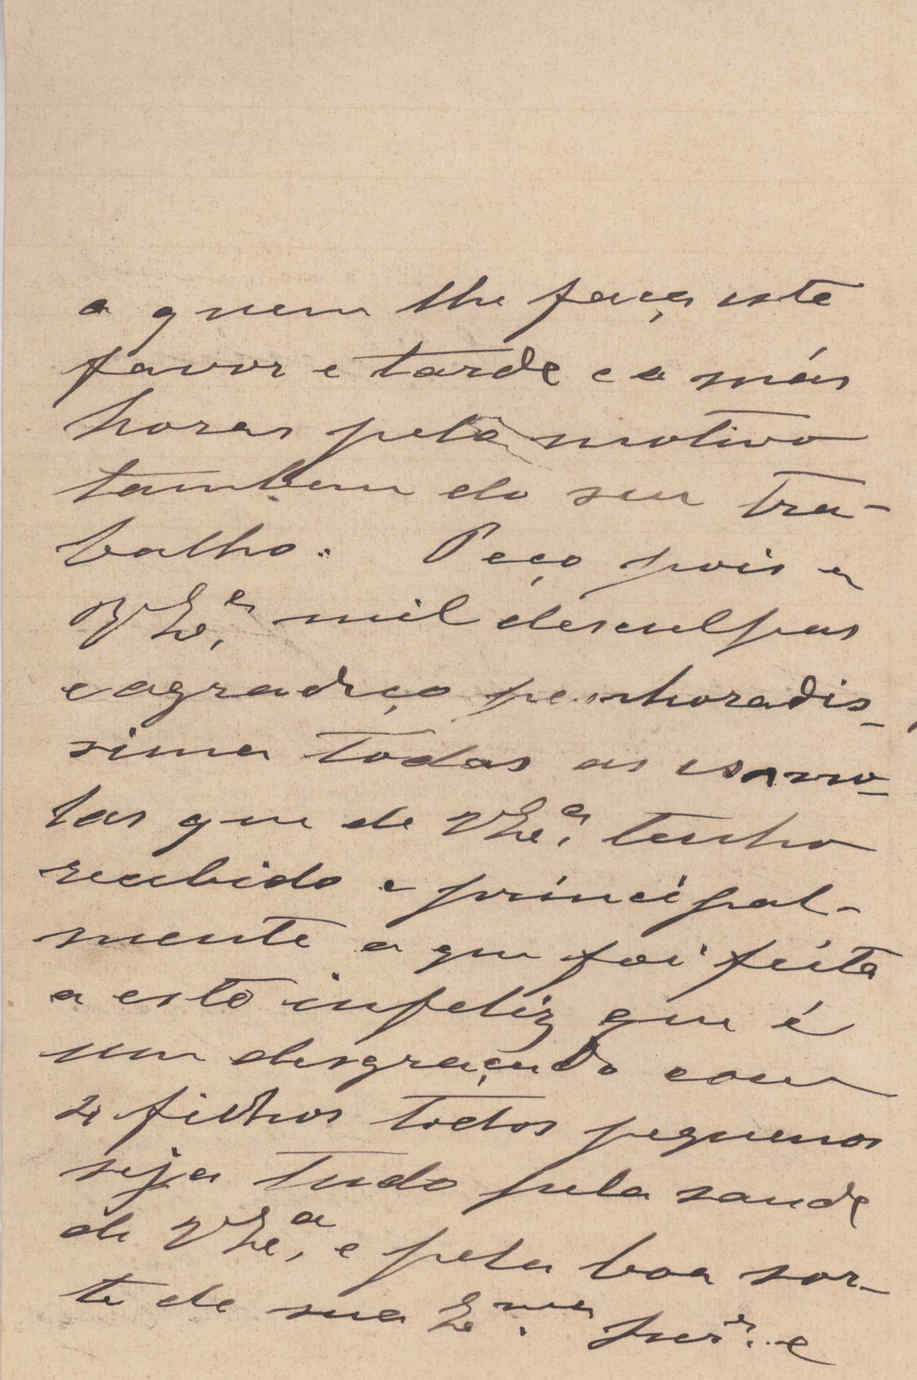 a quem lhe faça este
favor e tarde e a más
horas pelo motivo
tambem do seu tra-
balho. Peço pois a
V Exª. mil desculpas
e agradeço penhoradis-
sima todas as esmo-
las que de V Exª. tenho
recebido e principal-
mente a que foi feita
a este infeliz que é
um desgraçado com
4 filhos todos pequenos
seja tudo pela saude
de V Exª, e pela boa sor-
te de sua Exma. e